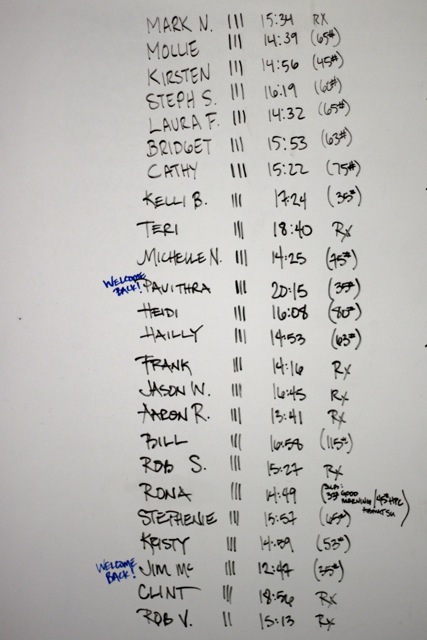 MARK N. III 15:34 RX
MOLLIE III 14:39 (65#)
KIRSTEN III 14:56 (45#)
STEPH S. III 16:19 (60#)
LAURA F. III 14:32 (65#)
BRIDGET III 15:53 (63#)
CATHY III 15:22 (75#)
KELLI B. III 17:24 (35#)
TERI III 18:40 Rx
MICHELLE N. III 14:25 (75#)
WELCOME BACK! PAVITHRA III 20:15 (35#)
HEIDI III 16:08 (80#)
HAILLY III 14:53 (63#)
FRANK III 14:16 Rx
JASON W. III 16:45 Rx
AARON R. III 13:41 Rx
BILL III 16:58 (115#)
ROB S. III 15:27 Rx
RONA III 14:49 35# GOOD MORNING / 45#
STEPHENIE III 15:57 (65#)
KRISTY III 14:59 (53#)
WELCOME BACK! JIM Mc III 12:47 (35#)
CLINT III 18:56 Rx
ROB V. II 15:13 Rx